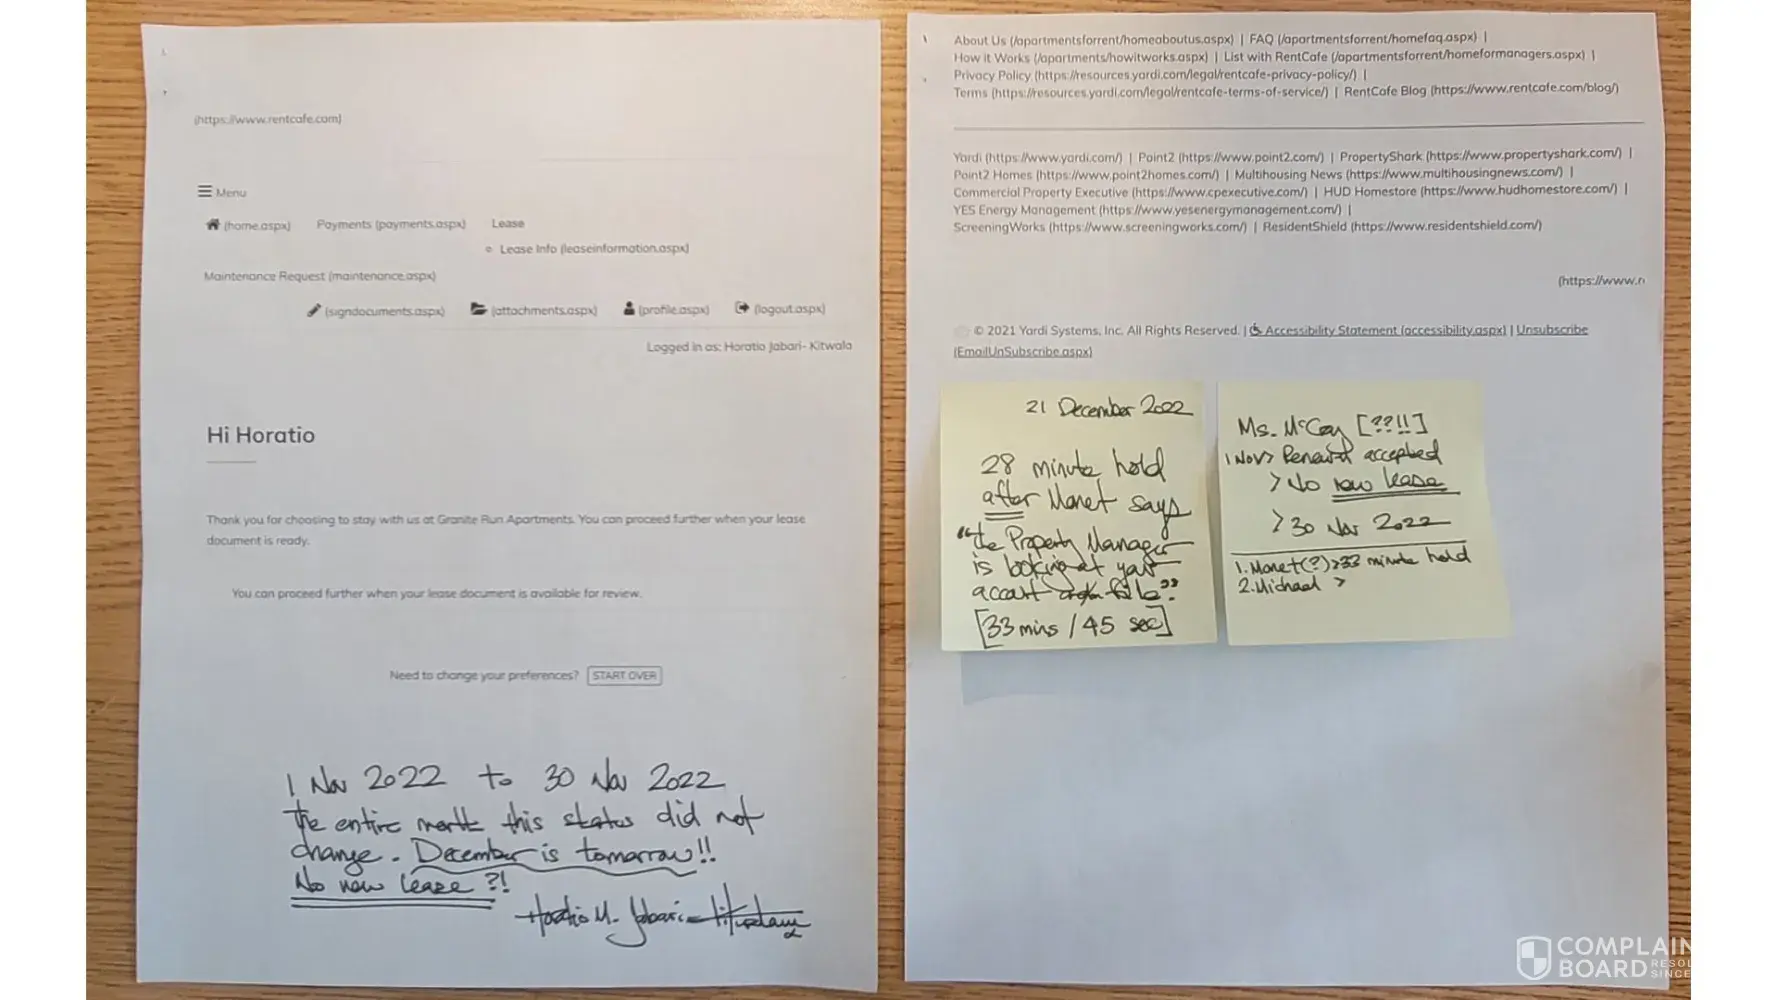 (https://www.rentcafe.com)
Menu
(home.aspx) Payments (payments.aspx) Lease
Lease Info (leaseinformation.aspx)
Maintenance Request (maintenance.aspx)
(signdocuments.aspx) (attachments.aspx) (profile.aspx) (logout.aspx)
Logged in as: Horatio Jabari- Kitwala
Hi Horatio
Thank you for choosing to stay with us at Granite Run Apartments. You can proceed further when your lease
document is ready.
You can proceed further when your lease document is available for review.
Need to change your preferences? START OVER
1 Nov 2022 to 30 Nov 2022
the entire month this status did not
change. December is tomorrow!!
No new lease ?!
Horatio M. Jabari-
About Us (/apartmentsforrent/homeaboutus.aspx) | FAQ (/apartmentsforrent/homefaq.aspx) |
How it Works (/apartments/howitworks.aspx) | List with RentCafe (/apartmentsforrent/homeformanagers.aspx) |
Privacy Policy (https://resources.yardi.com/legal/rentcafe-privacy-policy/) |
Terms (https://resources.yardi.com/legal/rentcafe-terms-of-service/) | RentCafe Blog (https://www.rentcafe.com/blog/)
Yardi (https://www.yardi.com/) | Point2 (https://www.point2.com/) | PropertyShark (https://www.propertyshark.com/) |
Point2 Homes (https://www.point2homes.com/) | Multihousing News (https://www.multihousingnews.com/) |
Commercial Property Executive (https://www.cpexecutive.com/) | HUD Homestore (https://www.hudhomestore.com/) |
YES Energy Management (https://www.yesenergymanagement.com/) |
ScreeningWorks (https://www.screeningworks.com/) | ResidentShield (https://www.residentshield.com/)
(https://www.r
© 2021 Yardi Systems, Inc. All Rights Reserved. | Accessibility Statement (accessibility.aspx) | Unsubscribe
(EmailUnSubscribe.aspx)
21 December 2022
28 minute hold
after Monet says
"the Property Manager
is looking at your
account file"
[33 mins / 45 sec]
Ms. McCoy [??!!]
1 Nov > Renewal accepted
> No new lease
> 30 Nov 2022
1. Monet(?) > 33 minute hold
2. Michael >
COMPLAIN
BOARD RESOL
SINCE